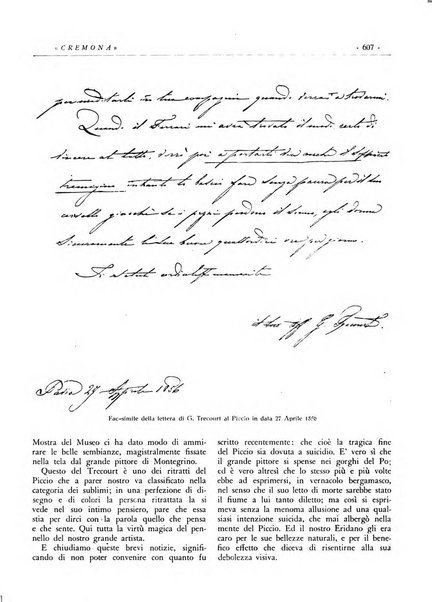 « CREMONA »
- 607 -
per
in tua compagnia quando verrai a trovarmi.
Quando il Ferrari mi avrà trovato il modo certo di
vincere al lotto, dirò poi a portarti
intanto te
cervello giacchè se i pazzi perdono il senno,
sicuramente tu hai buone quattordici ore per giorno.
Ti saluto
il tuo aff. G. Trecourt
Pavia 27 Aprile 1856
Fac-simile della lettera di G. Trecourt al Piccio in data 27 Aprile 1856
Mostra del Museo ci ha dato modo di ammi-
rare le belle sembianze, magistralmente fissate
nella tela dal grande pittore di Montegrino.
Questo del Trecourt è uno dei ritratti del
Piccio che a parer nostro va classificato nella
categoria dei sublimi; in una perfezione di dise-
gno e di colori la persona ritrattata la si
vede nel suo intimo pensiero, pare che essa
stia per dirci con la parola quello che pensa
e che sente. Qui tutta la virtù magica del pen-
nello del nostro grande artista.
E chiudiamo queste brevi notizie, signifi-
cando di non poter convenire con quanto fu
scritto recentemente: che cioè la tragica fine
del Piccio sia dovuta a suicidio. E' vero sì che
il grande pittore si spense nei gorghi del Po;
ed è altresì vero che lo stesso più e più volte
ebbe ad esprimersi, in vernacolo bergamasco,
nel senso che il suo letto di morte sarebbe stato
il fiume a lui tanto diletto; ma questa sua affer-
mava senza la menoma allusione ad una qual-
siasi intenzione suicida, che mai albergò nella
mente del Piccio. Ed il nostro Eridano gli era
caro per le sue bellezze naturali, e per il bene-
fico effetto che diceva di risentirne alla sua
debolezza visiva.